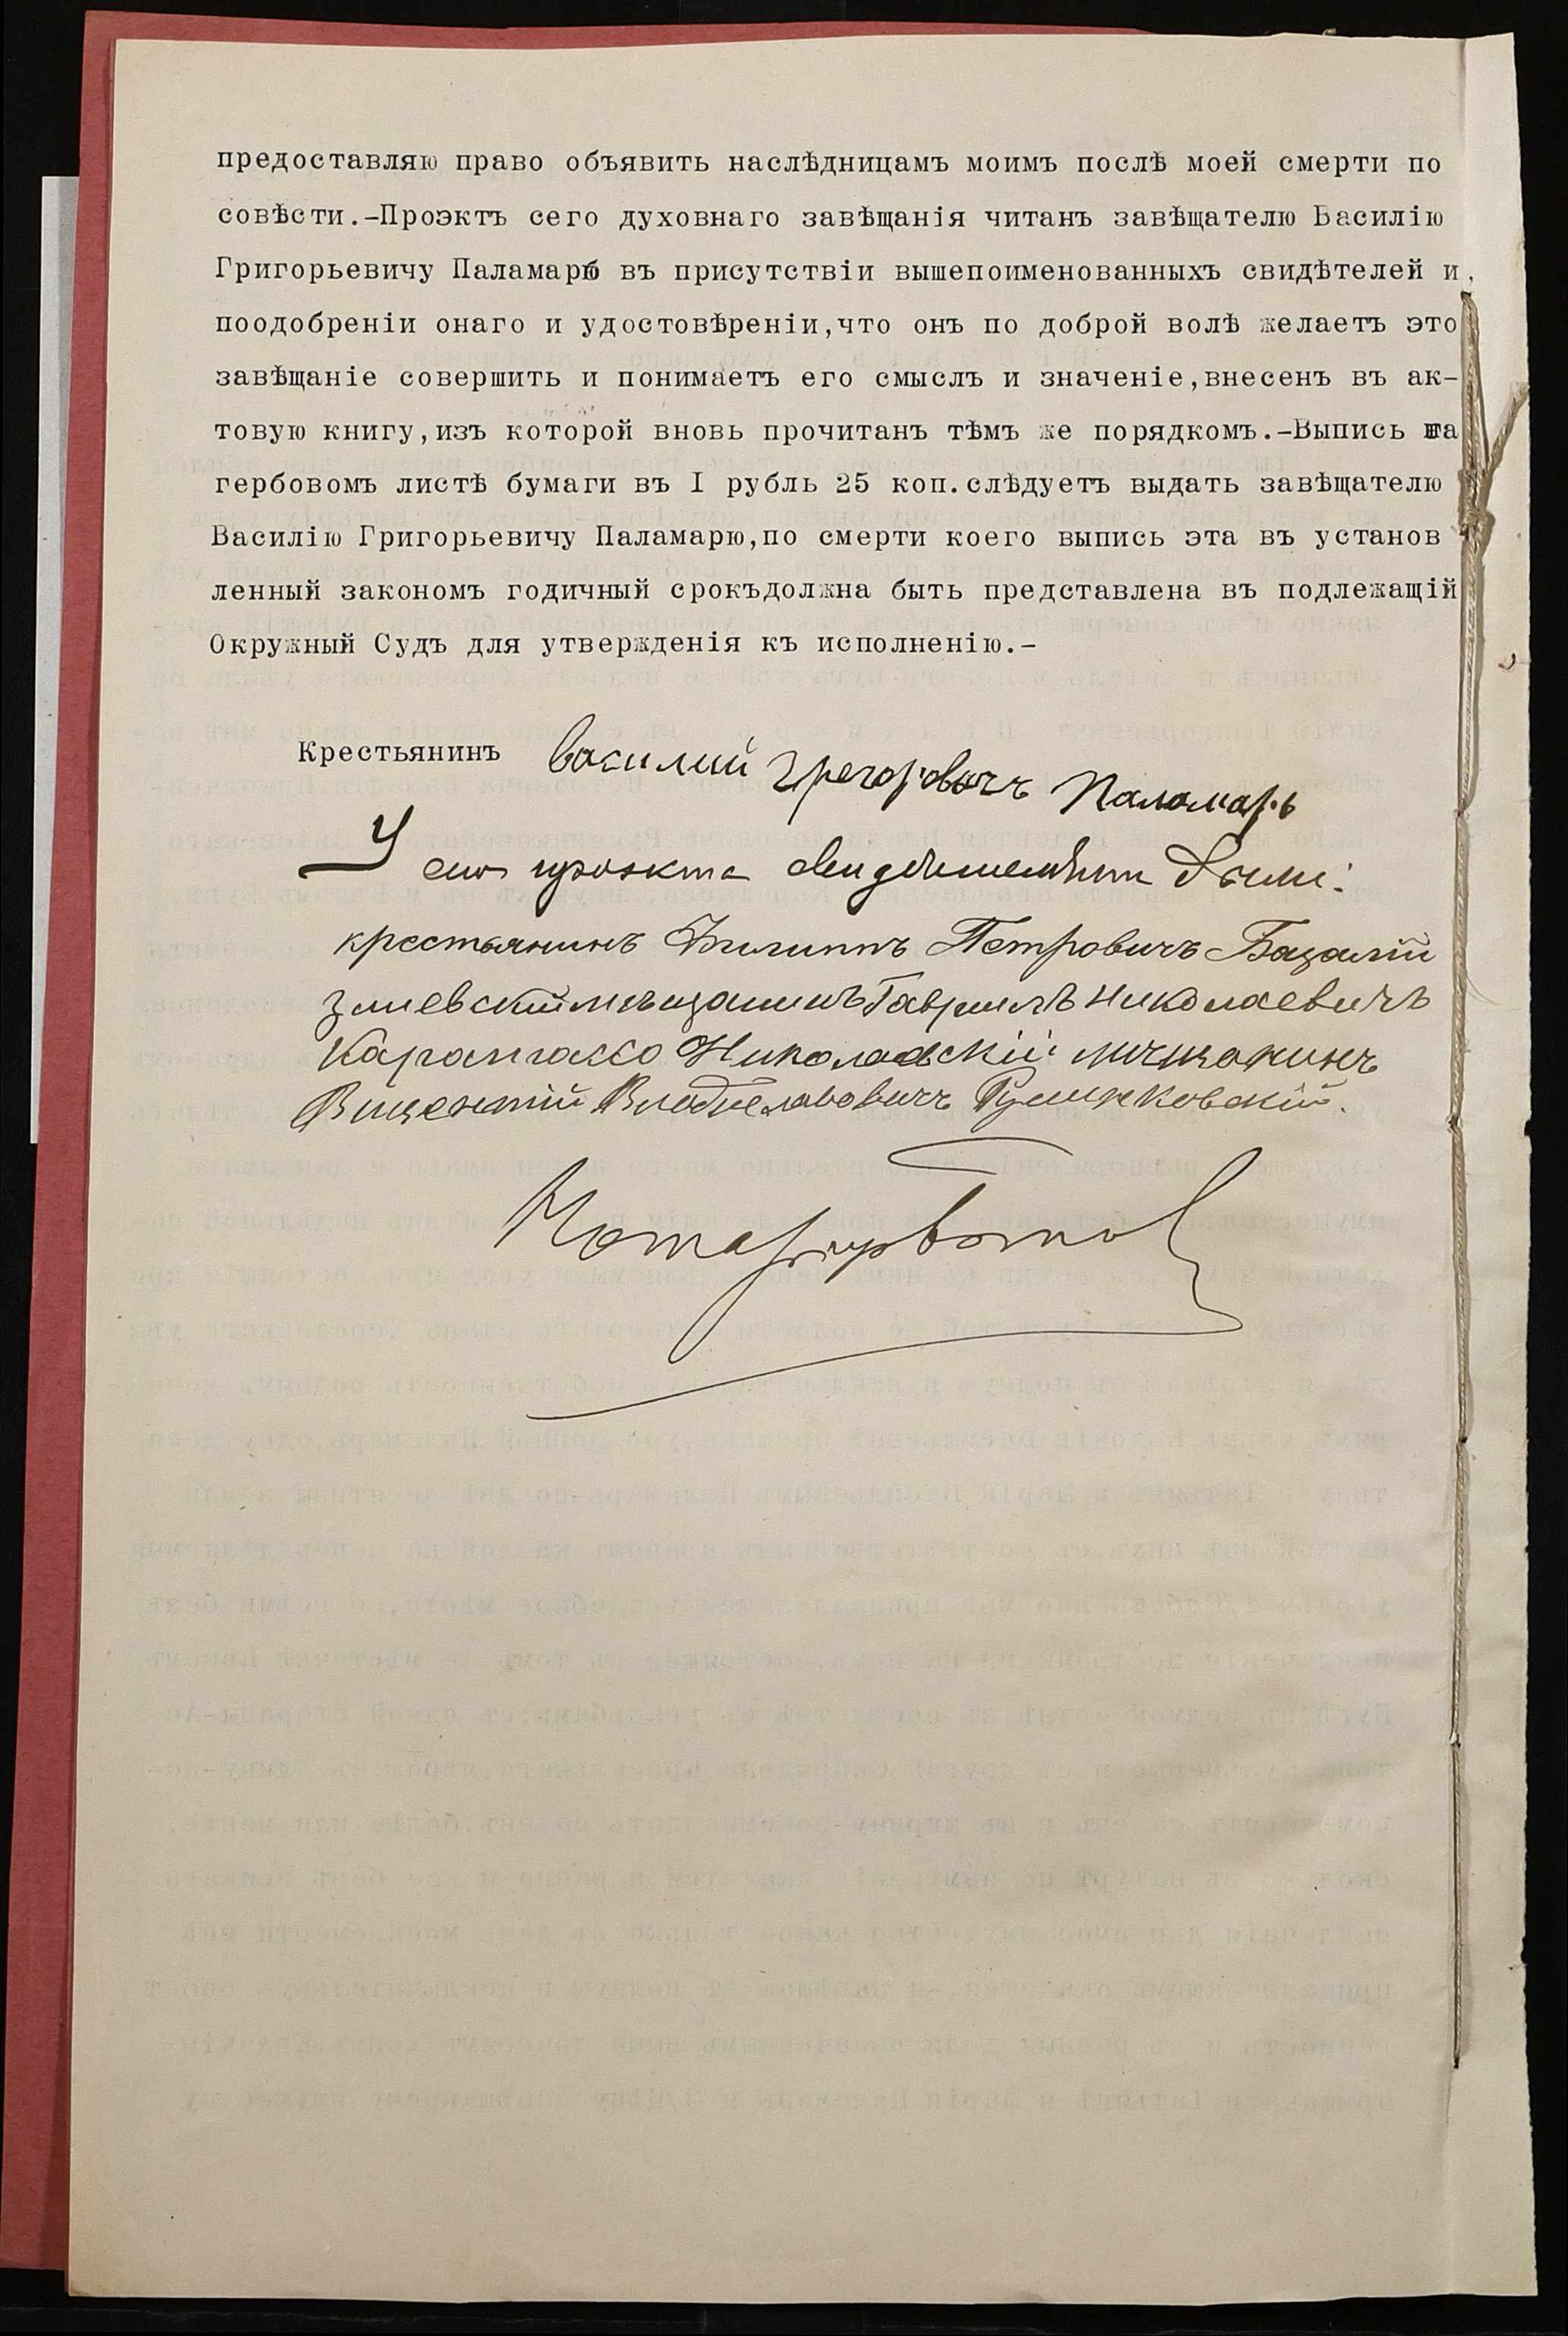 предоставляю право объявить наслѣдницамъ моимъ послѣ моей смерти по
совѣсти.-Проэктъ сего духовнаго завѣщанія читанъ завѣщателю Василію
Григорьевичу Паламарю въ присутствіи вышепоименованныхъ свидѣтелей и,
поодобреніи онаго и удостовѣреніи,что онъ по доброй волѣ желаетъ это
завѣщаніе совершить и понимаетъ его смыслъ и значеніе,внесенъ въ ак-
товую книгу,изъ которой вновь прочитанъ тѣмъ же порядкомъ.-Выпись на
гербовомъ листѣ бумаги въ I рубль 25 коп.слѣдуетъ выдать завѣщателю
Василію Григорьевичу Паламарю,по смерти коего выпись эта въ установ
ленный закономъ годичный срокъдолжна быть представлена въ подлежащій
Окружный Судъ для утвержденія къ исполненію.-
Крестьянинъ Василий Грегоровичъ Паламарь
У сего проэкта свидѣтелями были:
крестьянинъ Филиппъ Петровичъ Бацалій
змиевский мѣщанинъ Гавриилъ Николаевичъ
Николаевскій мѣщанинъ
Викентій Владиславовичъ
Нотаріусъ